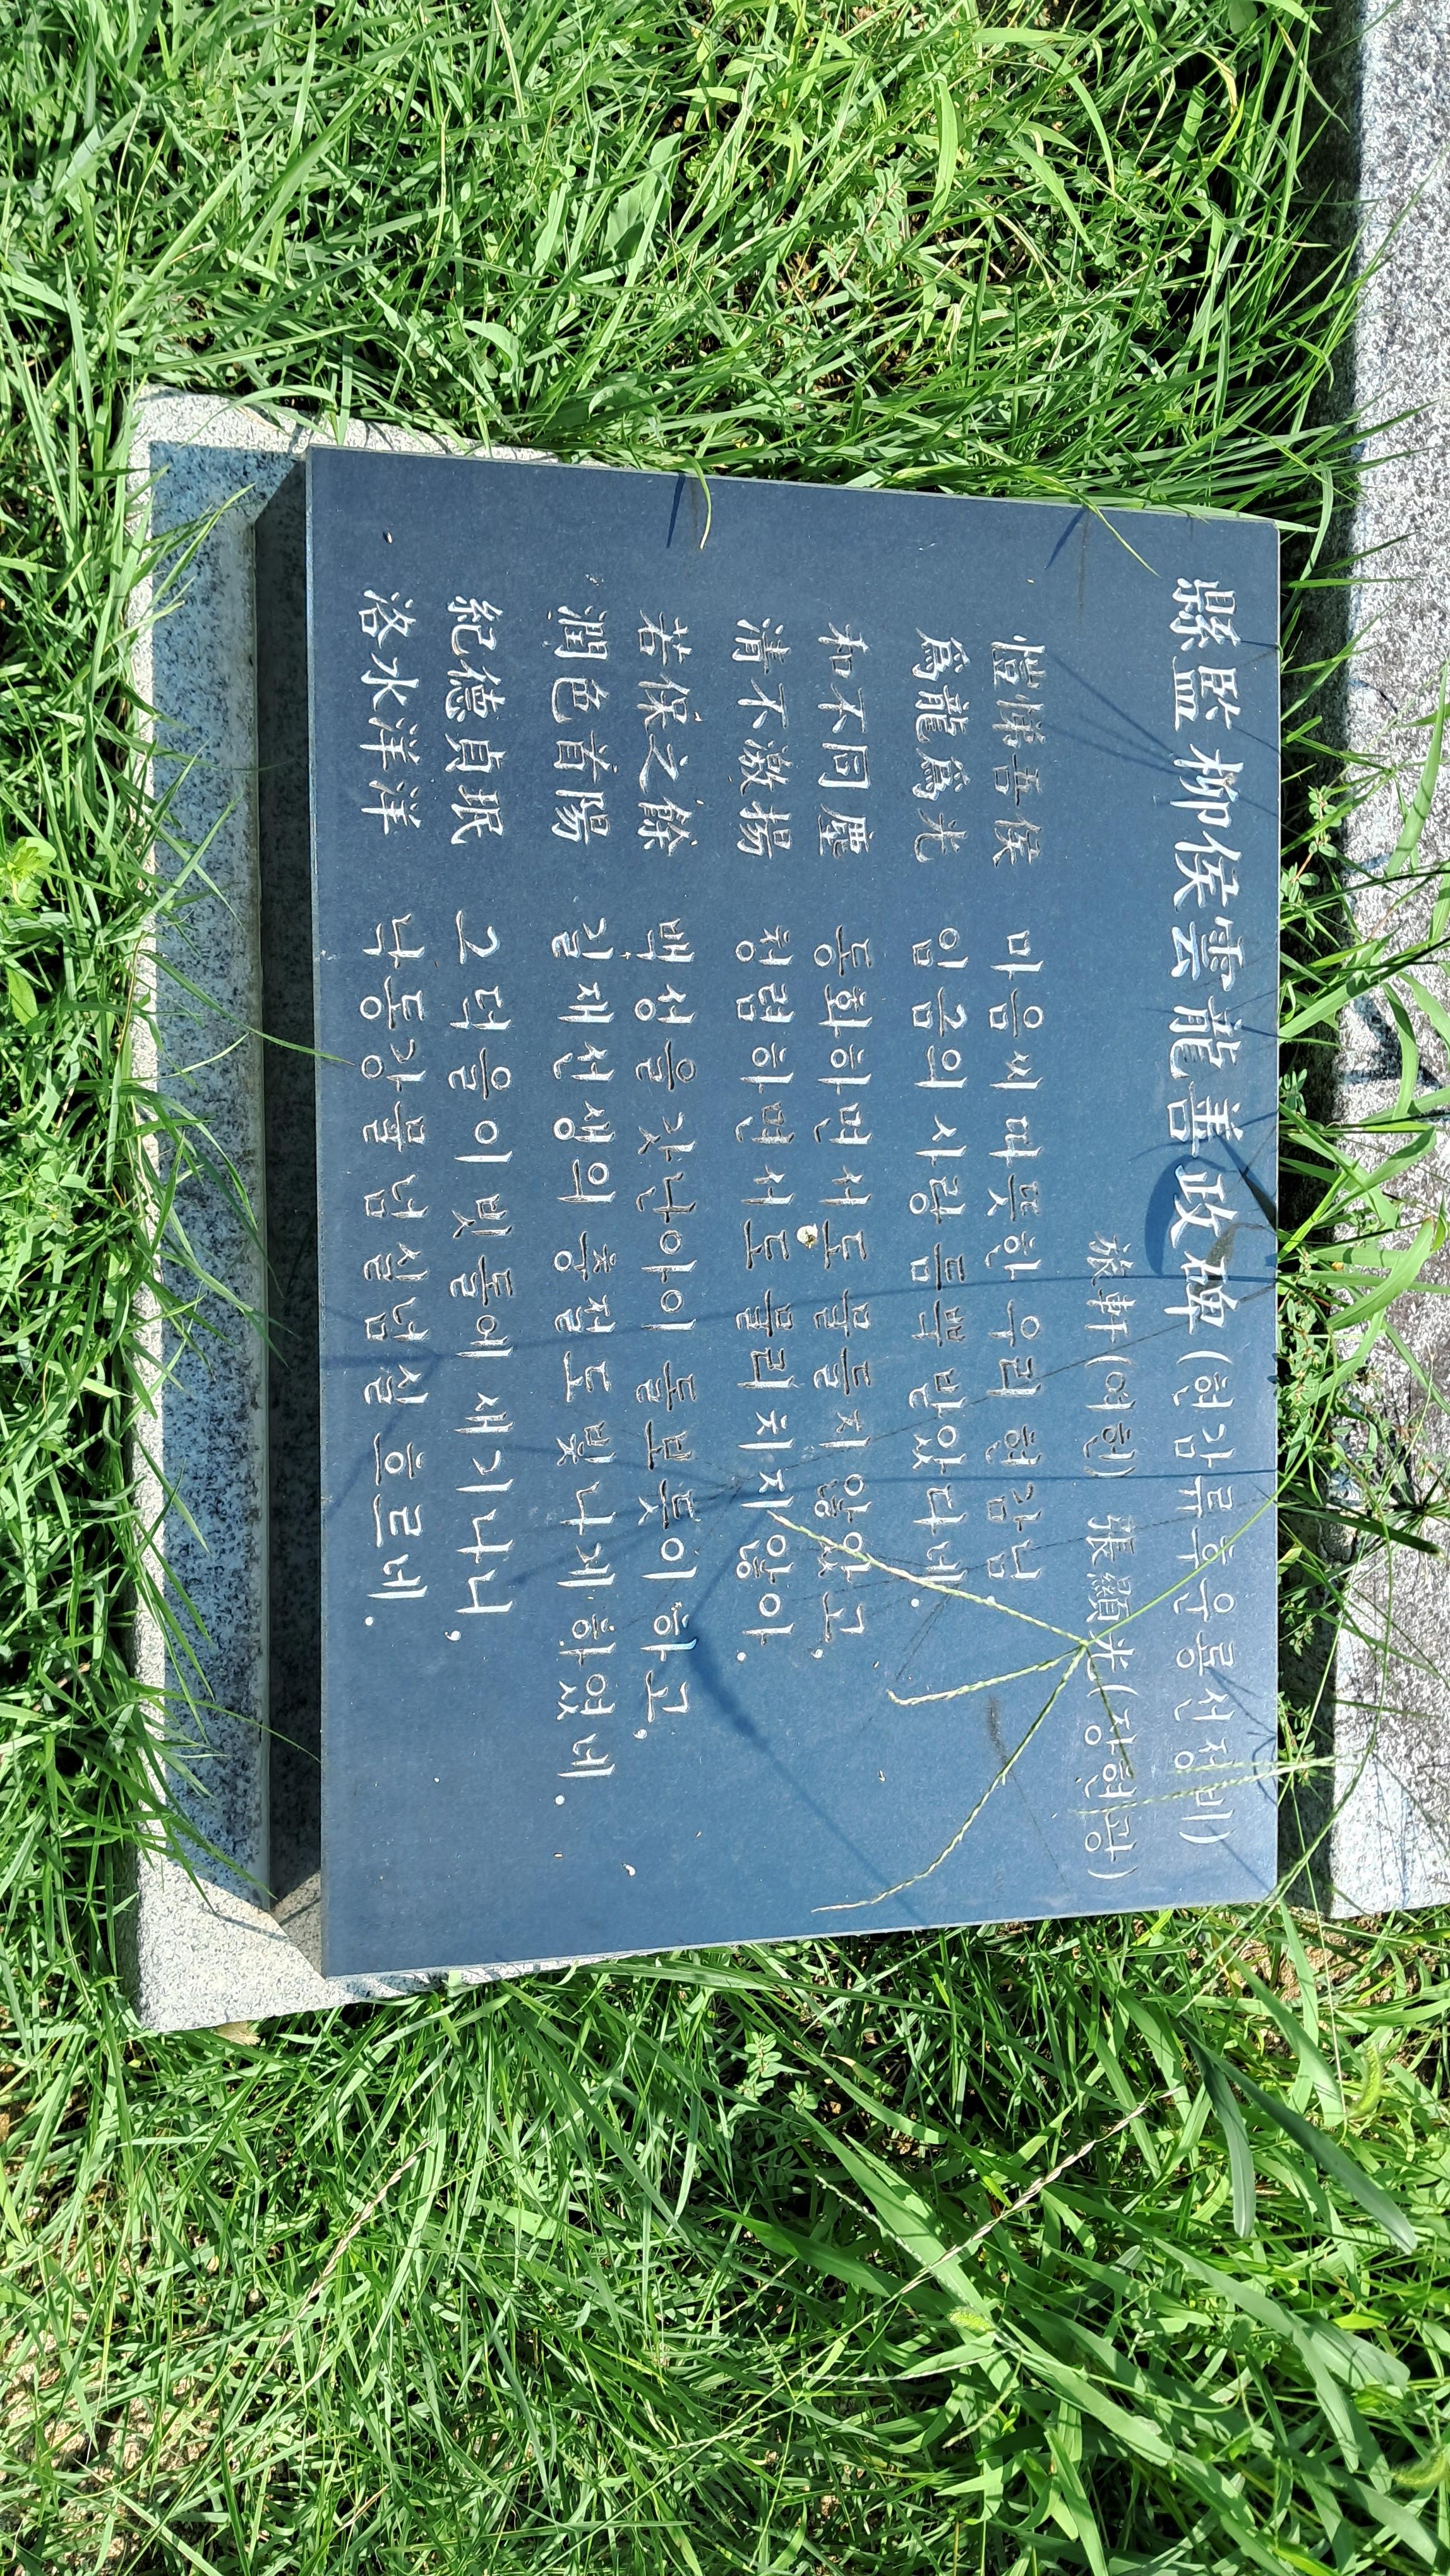 縣監柳侯雲龍善政碑(현감류후운룡선정비)
旅軒(여헌) 張顯光(장현광)
愷悌吾侯 마음씨 따뜻한 우리 현감님
爲龍爲光 임금의 사랑 듬뿍 받았다네.
和不同塵 동화하면서도 물들지 않았고,
淸不激揚 청렴하면서도 물리치지 않아.
若保之餘 백성을 갓난아이 돌보듯이 하고,
潤色首陽 길재선생의 충절도 빛나게 하였네.
紀德貞珉 그 덕을 이 빗돌에 새기나니,
洛水洋洋 낙동강물 넘실넘실 흐르네.